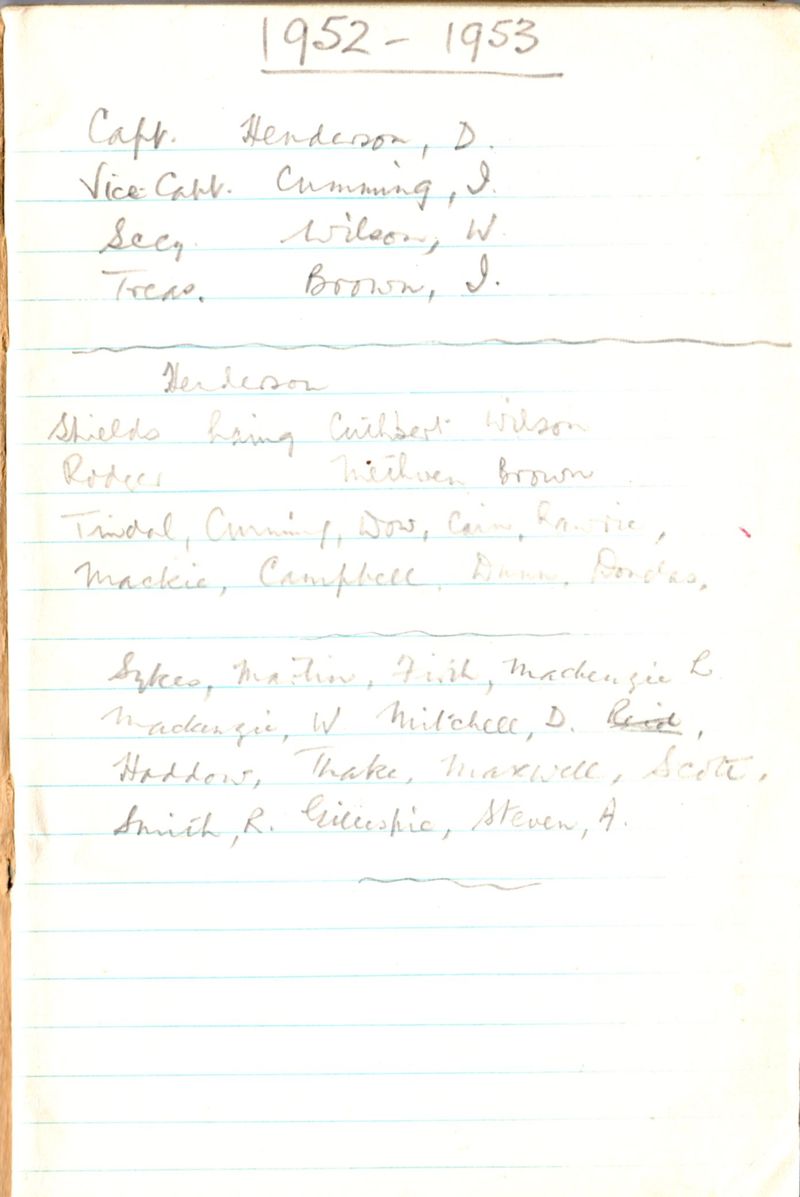 1952 - 1953
Capt. Henderson, D.
Vice-Capt. Cumming, I.
Secy. Wilson, W.
Treas. Brown, I.
Henderson
Shields Laing Cuthbert Wilson
Rodger Methven Brown
Tindal, Cumming, Dow, Cairn, Lawrie,
Mackie, Campbell, Dunn, Douglas,
Sykes, Martin, Firth, Mackenzie L
Mackenzie, W Mitchell, D. Reid,
Haddow, Thake, Maxwell, Scott,
Smith, R. Gillespie, Steven, A.